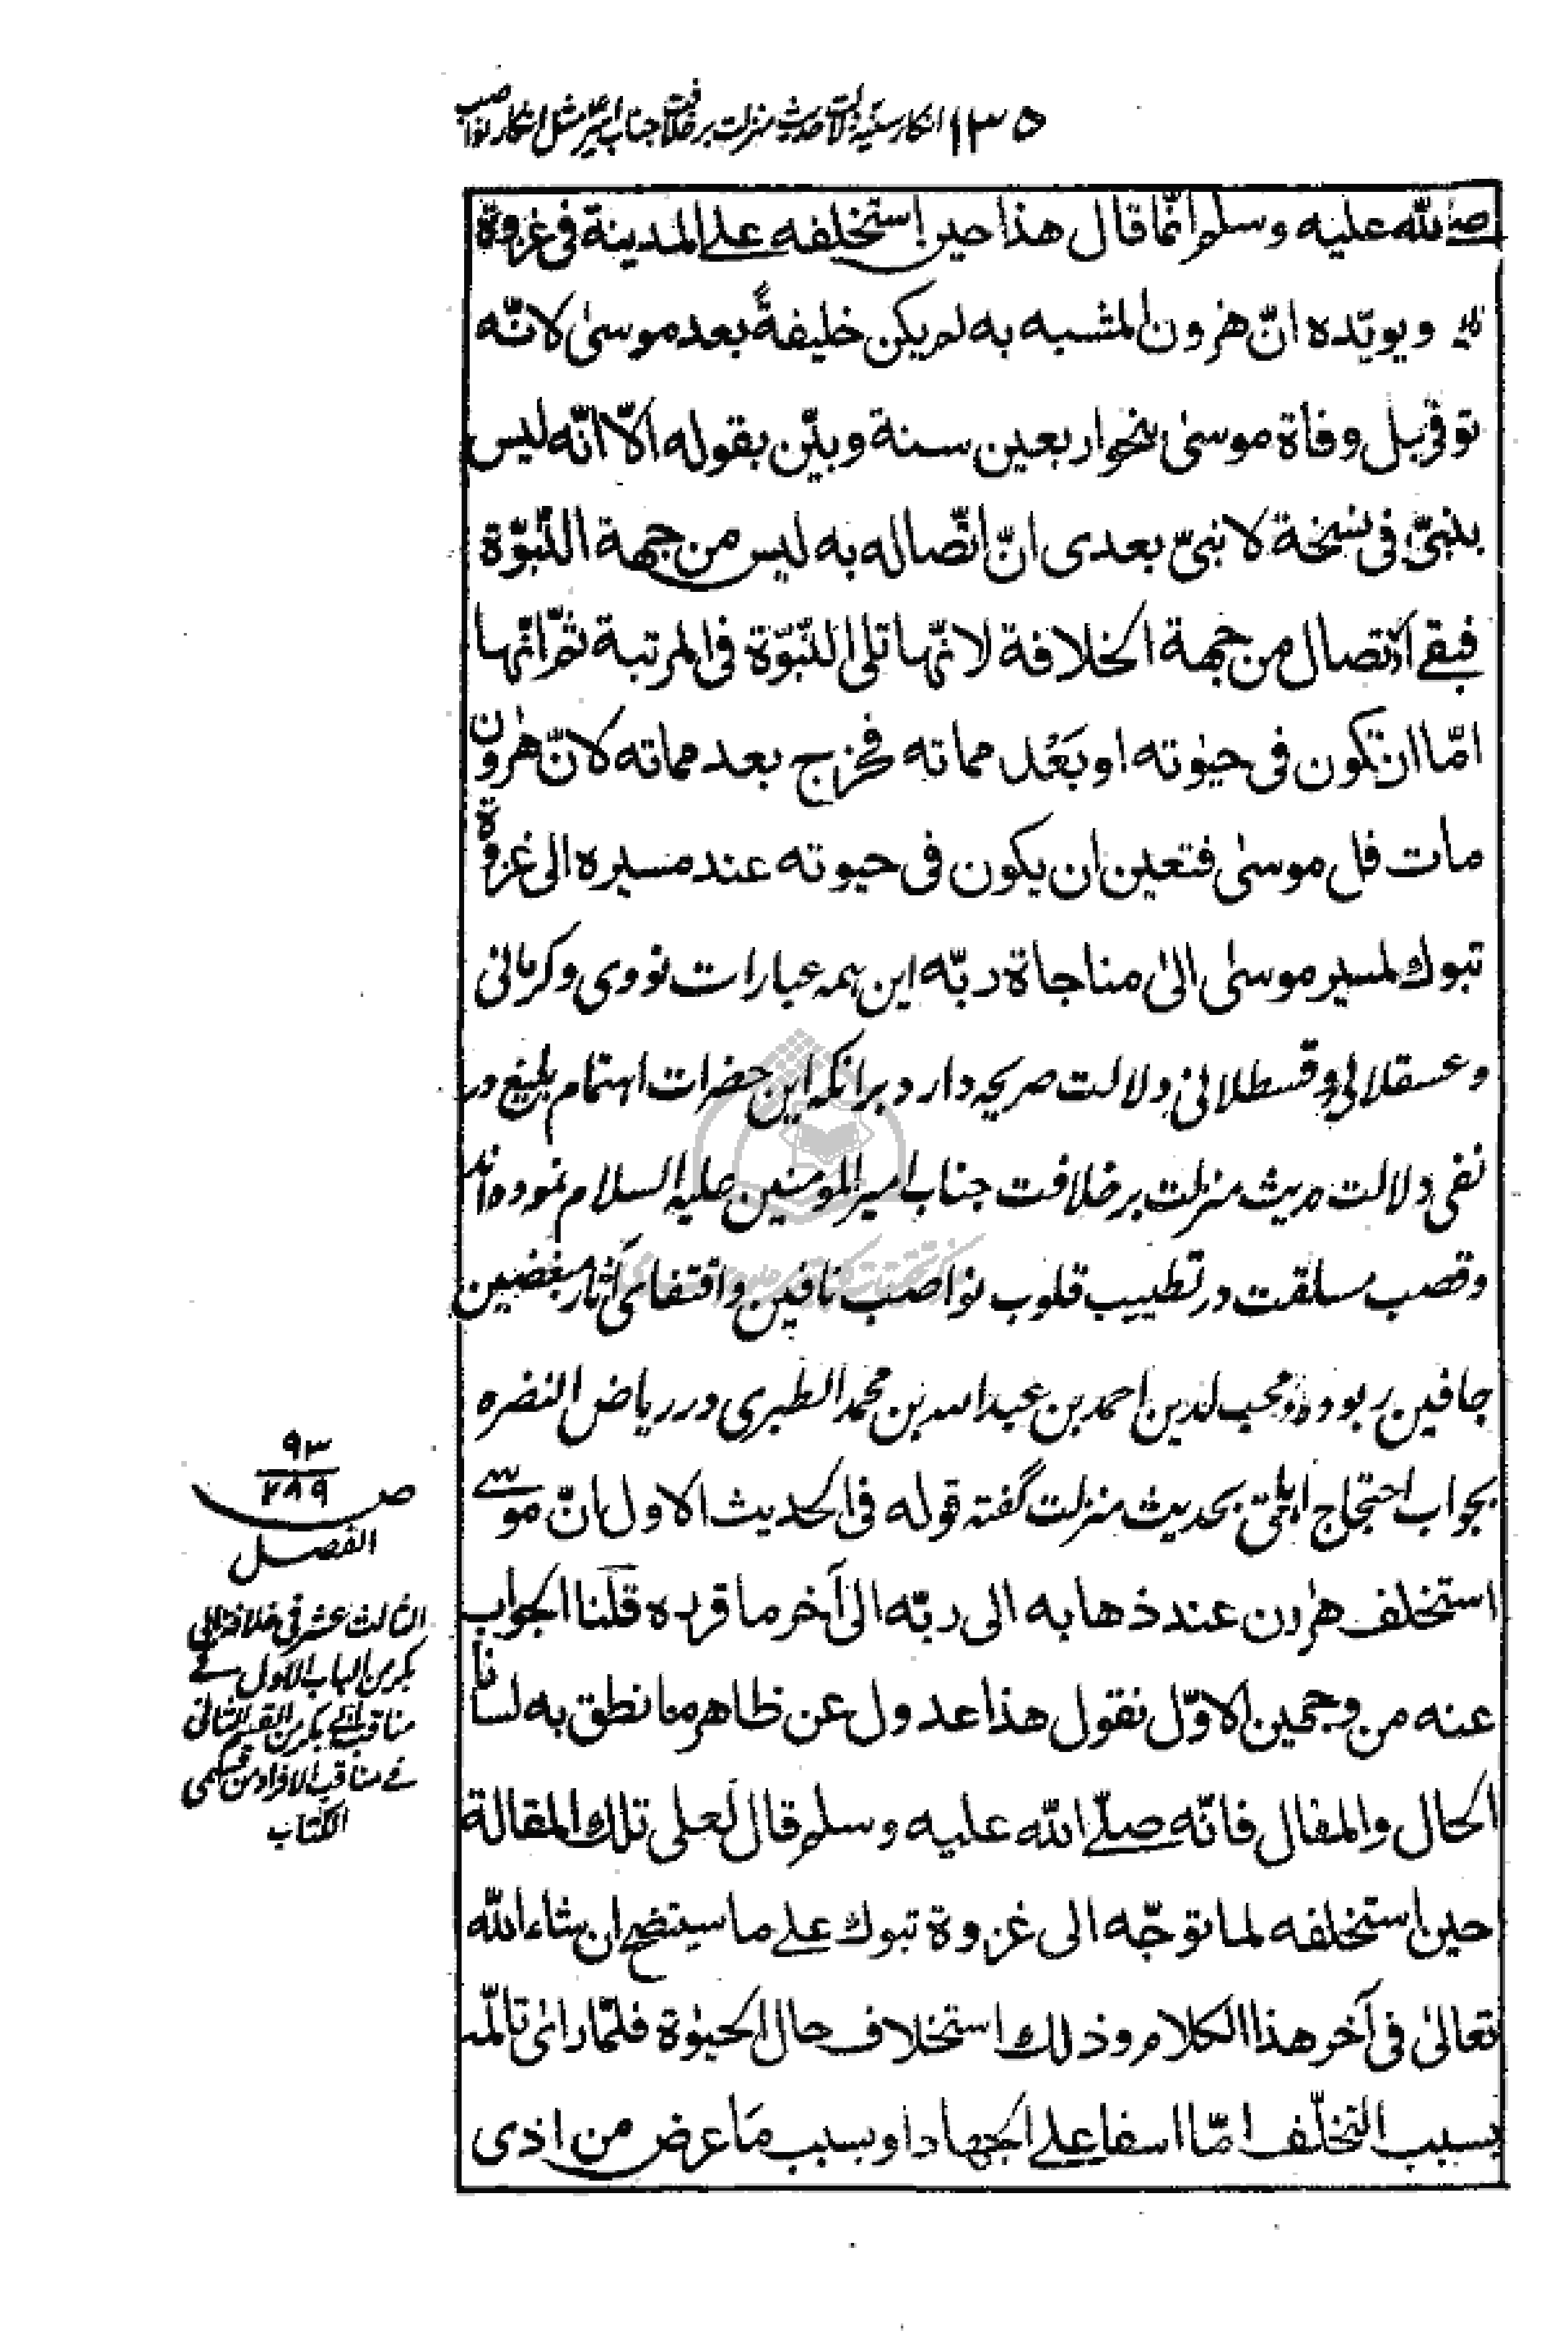 ۱۳۵ انکار سنیه دلالت حدیث منزلت بر خلافت جناب امیر مثل انکار نواصب
صلی الله علیه وسلم انّما قال هذا حین استخلفه علی المدینة فی غزوة
ویویّده انّ هرون المشبه به لم یکن خلیفةً بعد موسیٰ لانّه
توفی قبل وفاة موسیٰ بنحو اربعین سنة وبیّن بقوله الّا انّه لیس
بنبیّ و فی نسخة لا نبیّ بعدی انّ اتّصاله به لیس من جهة النّبوّة
فبقی الاتّصال من جهة الخلافة لانّها تلی النّبوّة فی المرتبة ثمّ انّها
امّا ان تکون فی حیٰوته او بَعْد مماته فخرج بعد مماته لانّ هرٰون
مات قبل موسیٰ فتعین ان یکون فی حیوته عند مسیره الی غزوة
تبوك لمسیر موسیٰ الیٰ مناجاة ربّه این همه عبارات نووی و کرمانی
و عسقلانی و قسطلانی دلالت صریحه دارد برانکه این حضرات اهتمام بلیغ در
نفی دلالت حدیث منزلت بر خلافت جناب امیر المومنین علیه السلام نموده اند
و قصب مسابقت در تطییب قلوب نواصب نافین و اقتفای آثار مبغضین
جافین ربوده و محب الدین احمد بن عبد الله بن محمد الطبری در ریاض النضره
بجواب احتجاج اهل حق بحدیث منزلت گفته قوله فی الحدیث الاول انّ موسی
استخلف هرٰون عند ذهابه الی ربّه الیٰ آخر ما قرره قلنا الجواب
عنه من وجهین الاوّل نقول هذا عدول عن ظاهر ما نطق به لسان
الحال والمقال فانّه صلّی الله علیه وسلم قال لعلی تلك المقالة
حین استخلفه لما توجّه الی غزوة تبوك علی ما سیتضح ان شاء الله
تعالیٰ فی آخر هذا الکلام وذلك استخلاف حال الحیٰوة فلمّا رای تالّمه
بسبب التخلّف امّا اسفا علی الجهاد او بسبب مَا عرض من اذی
ص ۹۳/۲۸۹
الفصل
الثالث عشر فی خلافة ابی
بکر من الباب الاول فی
مناقب ابی بکر من القسم الثانی
فی مناقب الافراد من قسمی
الکتاب